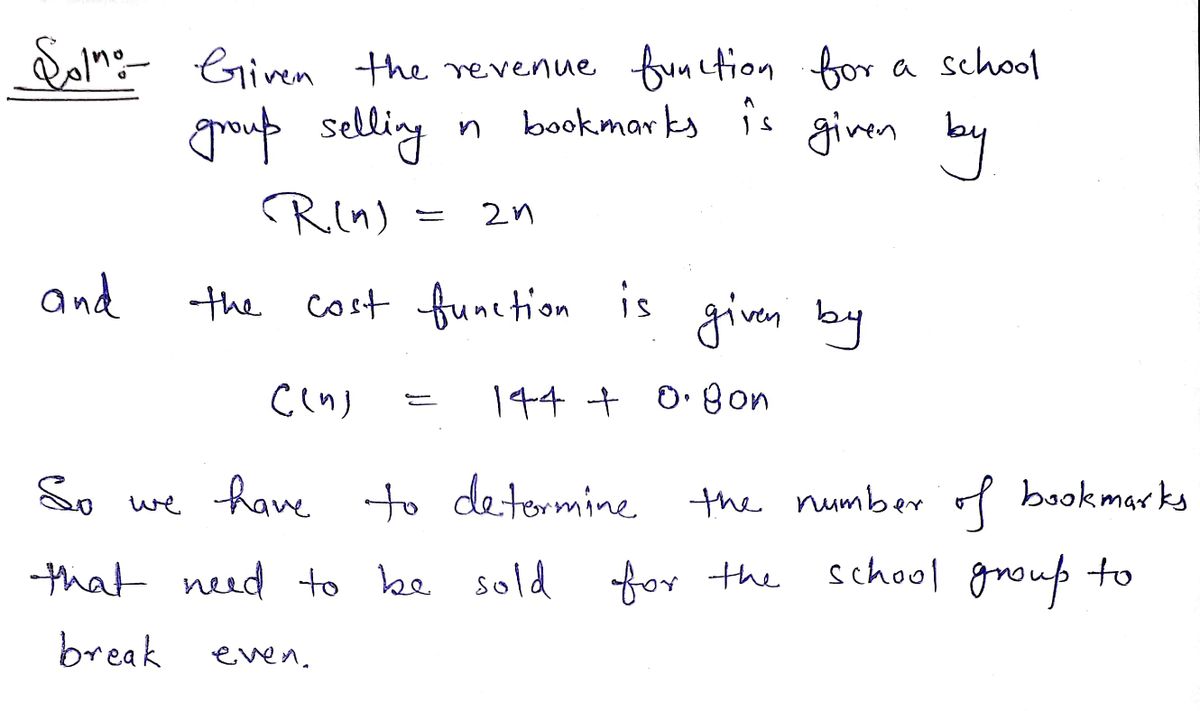 Soln:- Given the revenue function for a school
group selling n bookmarks is given by
R(n) = 2n
and the cost function is given by
C(n) = 144 + 0.80n
So we have to determine the number of bookmarks
that need to be sold for the school group to
break even.